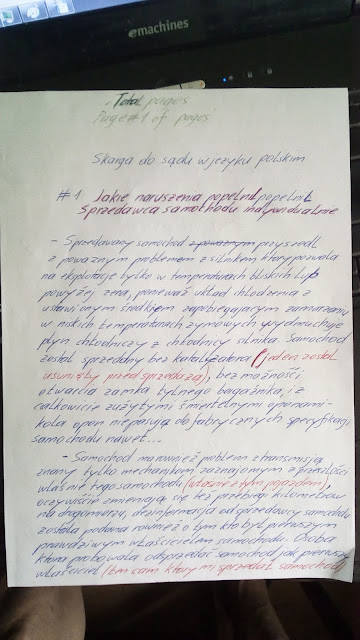 emachines
Total pages
Page #1 of pages
Skarga do sądu w języku polskim
#1 Jakie naruszenia popełnił popełnił
Sprzedawca samochodu indywidualnie
- Sprzedawany samochod z poważnym przyszedł
z poważnym problemem z silnikem który pozwala
na eksplotację tylko w temperaturach bliskich lub
powyżej zera, ponieważ układ chłodzenia z
ustawionym środkiem zapobiegającym zamarzaniu
w niskich temperatorach zymowych wydmuchuje
płyn chłodniczy z chłodnicy silnika. Samochod
został sprzedany bez katalyzatora (jeden został
usunięty przed sprzedażą), bez możności
otwarcia zamka tylnego bagażnika, i z
całkowicie zużytymi śmiertelnymi oponami-
koła opon niepasują do fabrycznych specyfikacji
samochodu nawet...
- Samochod ma rownież problem z transmisją
znany tylko mechanikom zaznajomym z przeszłości
właśnie tego samochodu (właśnie z tym pojazdem),
oczywiście zmieniają się też przebiegi kilometrów
na drogomierzu, dezinformacja od sprzedawcy samochodu
została podana rownież o tym kto był pierwszym
prawdziwym właścicielem samochodu. Osoba
ktora probowała odsprzedać samochod jak pierwszy
właściciel (ten sam, ktory mi sprzedał samochod)